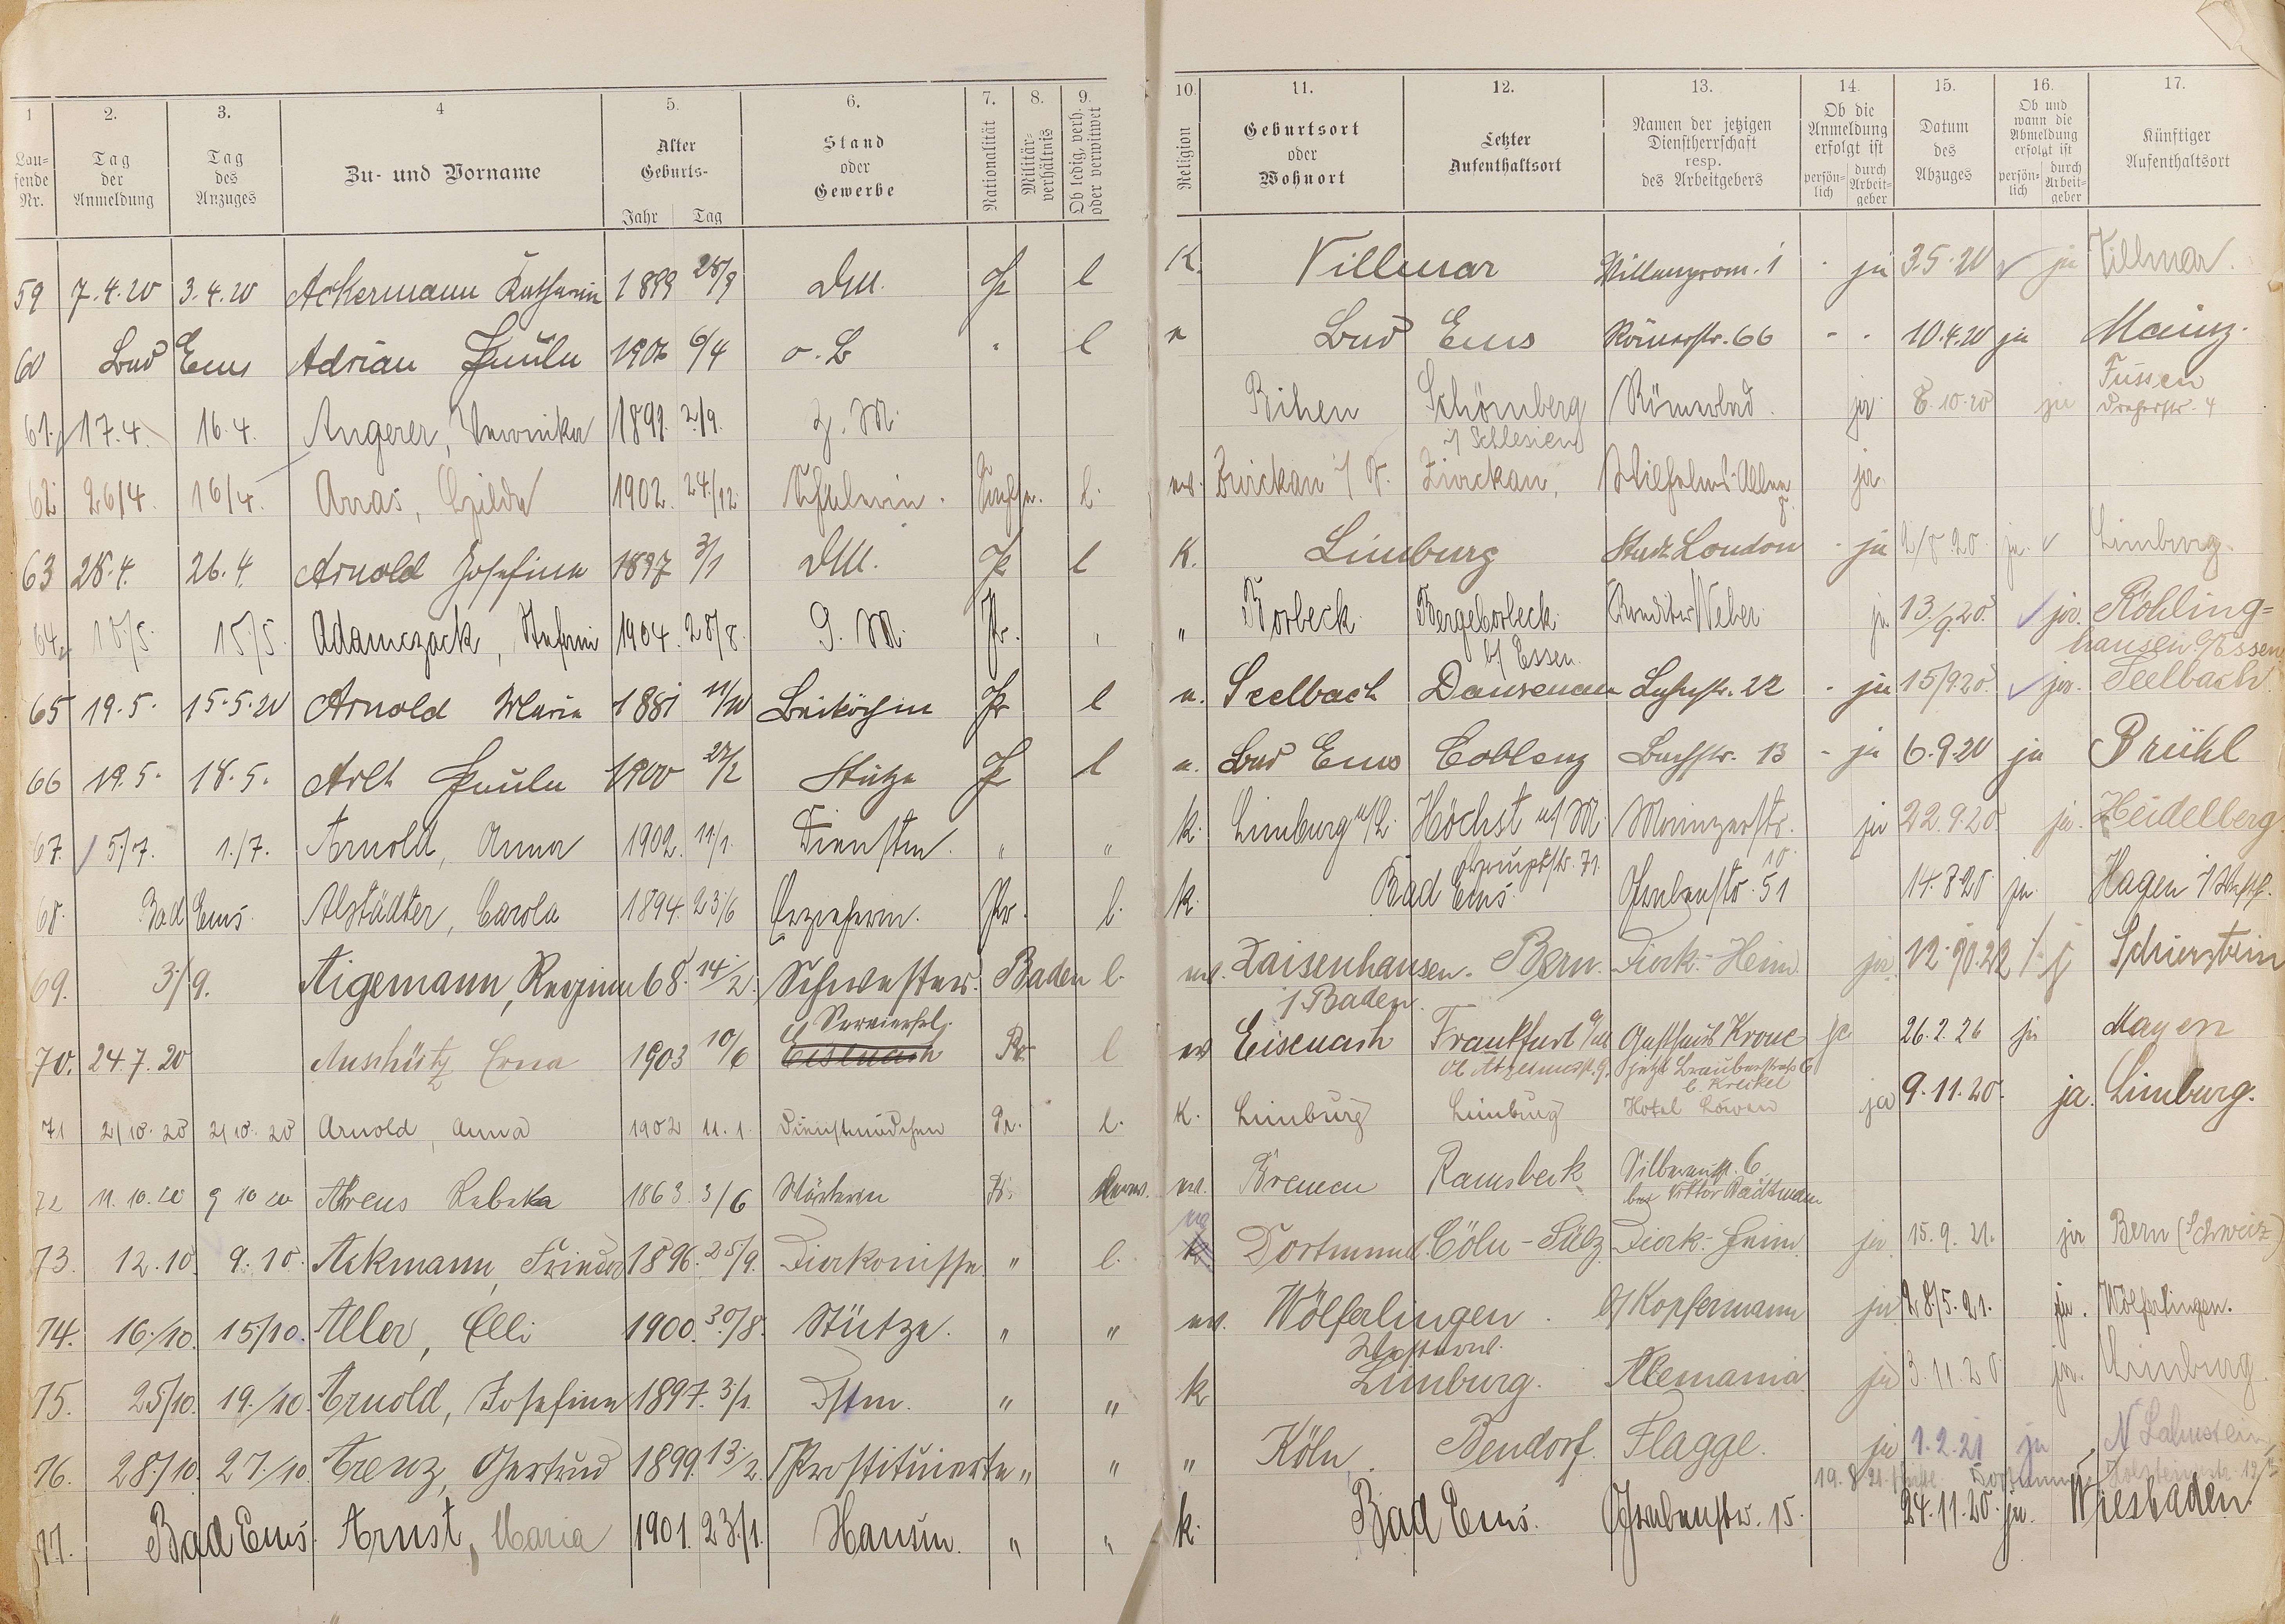 1 2. 3. 4 5. 6. 7. 8. 9. 10. 11. 12. 13. 14. 15. 16. 17.
Lau- fende Nr. Tag der Anmeldung Tag des Anzuges Zu- und Vorname Alter Geburts- Jahr Tag Stand oder Gewerbe Nationalität Militär- verhältnis Ob ledig, verh. oder verwitwet Religion Geburtsort oder Wohnort Letzter Aufenthaltsort Namen der jetzigen Dienstherrschaft resp. des Arbeitgebers Ob die Anmeldung erfolgt ist persön- lich durch Arbeit- geber Datum des Abzuges Ob und wann die Abmeldung erfolgt ist persön- lich durch Arbeit- geber Künftiger Aufenthaltsort
59 7.4.20 3.4.20 Ackermann Katharin 1899 28/9 DM. Pr l K. Villmar Villenprom. 1 - ja 3.5.20 ja Villmar.
60 Bad Ems Adrian Paula 6/4 o. B " l Bad Ems Römerstr. 66 - - 10.4.20 ja Mainz.
61. 17.4. 16.4. Angerer, Veronika 1891. 2/9. Z. M. Schömberg Römerbad. ja 8.10.20 ja Füssen
i/ Schlesien
62. 26/4. 16/4. Arras, Hilde 1902. 24./12. Schülerin. Sachse. l. ev. Zwickau i/S. Zwickau, Wilhelms-Allee 8. ja.
63 28.4. 26.4. Arnold Josefine 1897 3/1 DM. Pr l K. Limburg Stadt London - ja 2/8.20. ja. Limburg.
64. 18/5. 15/5. Adamczack, Stefani 1904. 28/8. Z. M. Pr. " " Borbeck. Bergeborbeck. Konditor Weber ja. 13./9.20. ja. Röhling=
b/ Essen. hausen b/Essen
65 19.5. 15.5.20 Arnold Maria 1881 11/10 Beiköchin Pr l Seelbach Dausenau Lahnstr. 22 - ja 15/9.20. ja. Seelbach
66 19.5. 18.5. Arlt Paula 1900 27/2 Stütze Pr l Bad Ems Coblenz Bachstr. 13 - ja 6.9.20 ja Brühl
67. 5./7. 1./7. Arnold, Anna 1902. 11/1. Dienstm. " " k. Limburg a/L. Höchst a/M. Mainzerstr. 10. ja 22.9.20 ja. Heidelberg.
Hauptstr. 71.
68. Bad Ems. Alstädter, Carola 1894. 23/6 Erzieherin. Pr. l. k. Bad Ems. Grabenstr. 51 14.8.20 ja. Hagen i/Westf.
69. 3./9. Aigemann, Regina 68. 14./2. Schwester. Baden l. ev. Zaisenhausen. Bern. Diak.-Heim. ja Schierstein
i. Baden.
70. 24.7.20 Anschütz Erna 1903 10/6 Servierfrl. Eisenach Pr. l ev Eisenach Frankfurt a/M Gasthaus Krone ja 26.2.26 ja Mayen
jetzt Braubacherstraße 6
b. Kreikel
71 2/10.20 2/10.20 Arnold, Anna 1902 11.1. Dienstmädchen Pr. l. K. Limburg Limburg Hotel Löwen ja 9.11.20. ja. Limburg.
72 11.10.20 9 10 20 Ahrens Rebeka 1863. 3/6 ev. Bremen Ramsbeck Silberaustr. 6
bei Viktor Badtmann
73. 12.10. 9.10. Ackmann, Frieda 1896. 25/9. Diakonisse. " l. ev Dortmund. Cöln-Sülz. Diak.-Heim. ja. 15.9.21. ja Bern (Schweiz)
74. 16./10. 15/10. Aller, Elli 1900. 30./8. Stütze. " " ev. Wölferlingen. b/ Kopfermann ja 28/5.21. ja. Wölferlingen.
Westerwd.
75. 25/10. 19./10. Arnold, Josefine 1897. 3/1. Dstm. " " k Limburg. Alemania ja 3.11.20 ja. Limburg.
76. 28./10. 27./10. Arenz, Gertrud 1899. 13./2. Prostituierte " " " Köln, Bendorf. Flagge. ja 1.2.21 ja N Lahnstein,
77. Bad Ems. Arnst, Maria 1901. 23./1. Hausm. " " k. Bad Ems. Grabenstr. 15. 24.11.20. ja. Wiesbaden.